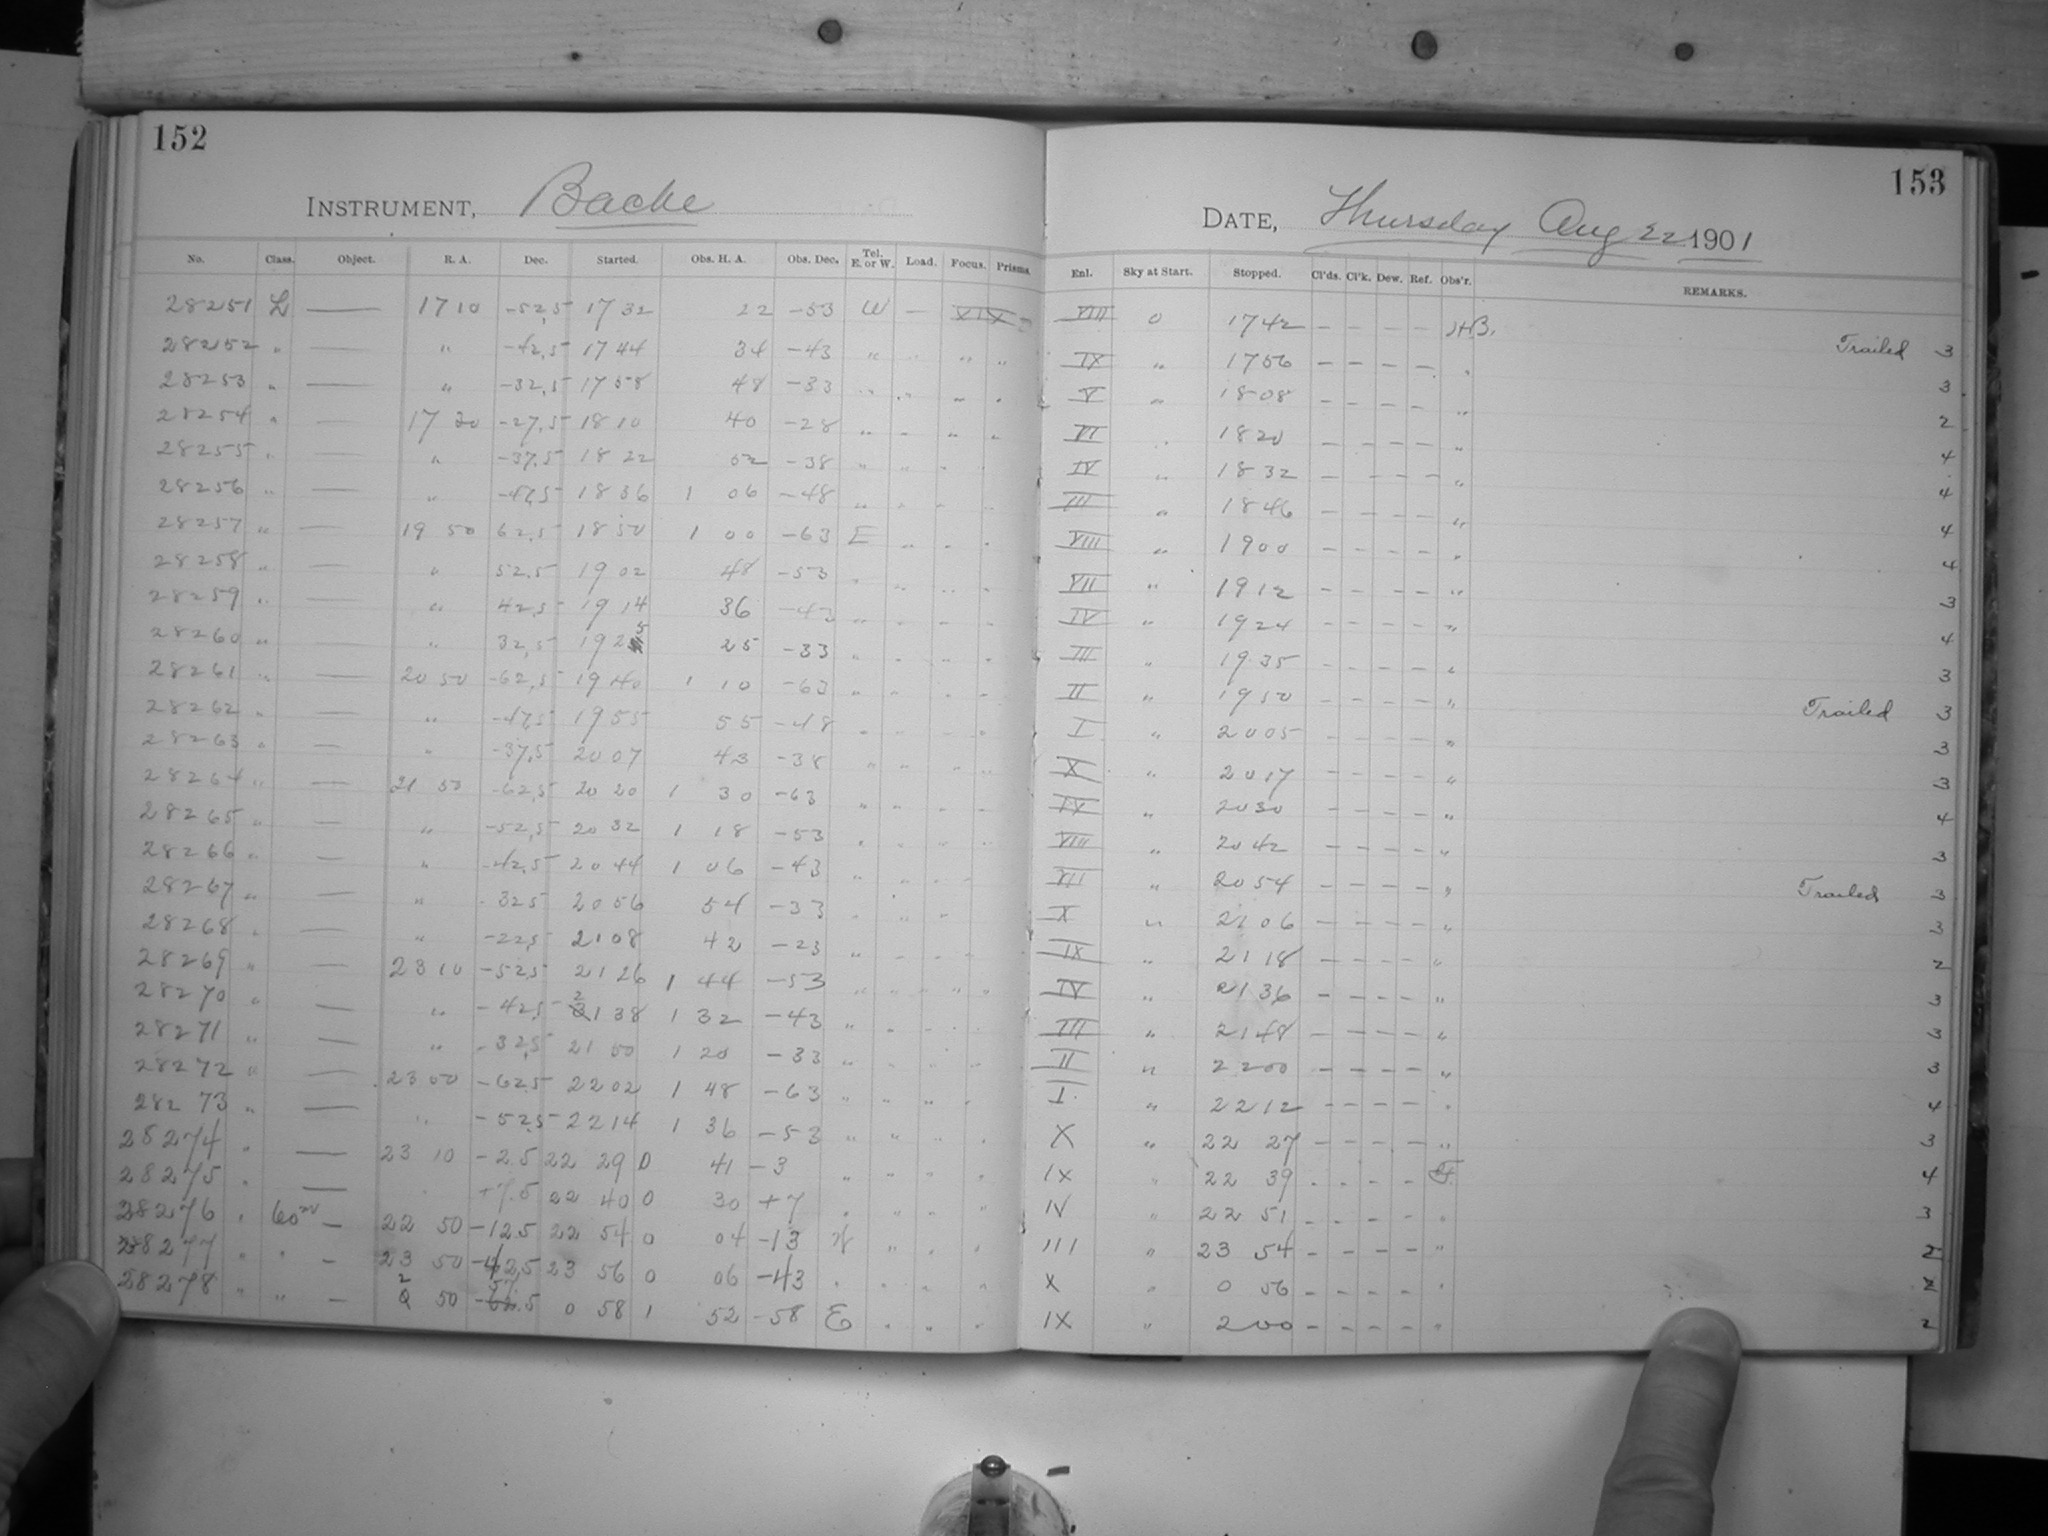 152
INSTRUMENT, Bache
No. Class. Object. R. A. Dec. Started. Obs. H. A. Obs. Dec. Tel. E. or W. Load. Focus. Prisms.
28251 L — 17 10 -52,5 17 32 22 -53 W — XIX
28252 " — " -42,5 17 44 34 -43 " " " "
28253 " — " -32,5 17 58 48 -33 " " " "
28254 " — 17 30 -27,5 18 10 40 -28 " " " "
28255 " — " -37,5 18 22 52 -38 " " " "
28256 " — " -47,5 18 36 1 06 -48 " " " "
28257 " — 19 50 62,5 18 50 1 00 -63 E " " "
28258 " — " 52,5 19 02 48 -53 " " " "
28259 " — " 42,5 19 14 36 -43 " " " "
28260 " — " 32,5 19 25 25 -33 " " " "
28261 " — 20 50 -62,5 19 40 1 10 -63 " " " "
28262 " — " -47,5 19 55 55 -48 " " " "
28263 " — " -37,5 20 07 43 -38 " " " "
28264 " — 21 50 -62,5 20 20 1 30 -63 " " " "
28265 " — " -52,5 20 32 1 18 -53 " " " "
28266 " — " -42,5 20 44 1 06 -43 " " " "
28267 " — " -32 5 20 56 54 -33 " " " "
28268 " — " -22,5 21 08 42 -23 " " " "
28269 " — 23 10 -52,5 21 26 1 44 -53 " " " "
28270 " — " -42,5 21 38 1 32 -43 " " " "
28271 " — " -32,5 21 50 1 20 -33 " " " "
28272 " — 23 00 -62,5 22 02 1 48 -63 " " " "
28273 " — " -52,5 22 14 1 36 -53 " " " "
28274 " — 23 10 -2.5 22 29 0 41 -3 " " " "
28275 " — " +7.5 22 40 0 30 +7 " " " "
28276 " 60m — 22 50 -12.5 22 54 0 04 -13 W " " "
28277 " " — 23 50 -42,5 23 56 0 06 -43 " " " "
28278 " " — 2 50 -57.5 0 58 1 52 -58 E " " "
153
DATE, Thursday Aug 22 1901
Enl. Sky at Start. Stopped. Cl'ds. Cl'k. Dew. Ref. Obs'r. REMARKS.
VIII 0 17 42 — — — — HB. Trailed 3
IX " 17 56 — — — — " 3
V " 18 08 — — — — " 2
VI " 18 20 — — — — " 4
IV " 18 32 — — — — " 4
III " 18 46 — — — — " 4
VIII " 19 00 — — — — " 4
VII " 19 12 — — — — " 3
IV " 19 24 — — — — " 4
III " 19 35 — — — — " 3
II " 19 50 — — — — " Trailed 3
I " 20 05 — — — — " 3
X " 20 17 — — — — " 3
IX " 20 30 — — — — " 4
VIII " 20 42 — — — — " 3
VII " 20 54 — — — — " Trailed 3
X " 21 06 — — — — " 3
IX " 21 18 — — — — " 2
IV " 21 36 — — — — " 3
III " 21 48 — — — — " 3
II " 22 00 — — — — " 3
I " 22 12 — — — — " 4
X " 22 27 — — — — " 3
IX " 22 39 — — — — F. 4
IV " 22 51 — — — — " 3
III " 23 54 — — — — " 2
X " 0 56 — — — — " 2
IX " 2 00 — — — — " 2